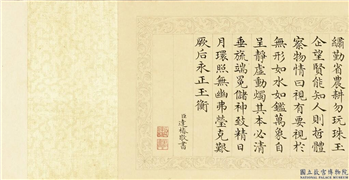 繡勤省農耕勿玩珠玉
企望賢能知人則哲體
察物情曰視有要視於
無形如水如鑑萬象自
呈靜虛動燭其本必清
垂旒端冕儲神 精日
月環照無幽弗瑩克艱
厥后永正玉衡
臣達椿敬書
國立故宮博物院
NATIONAL PALACE MUSEUM